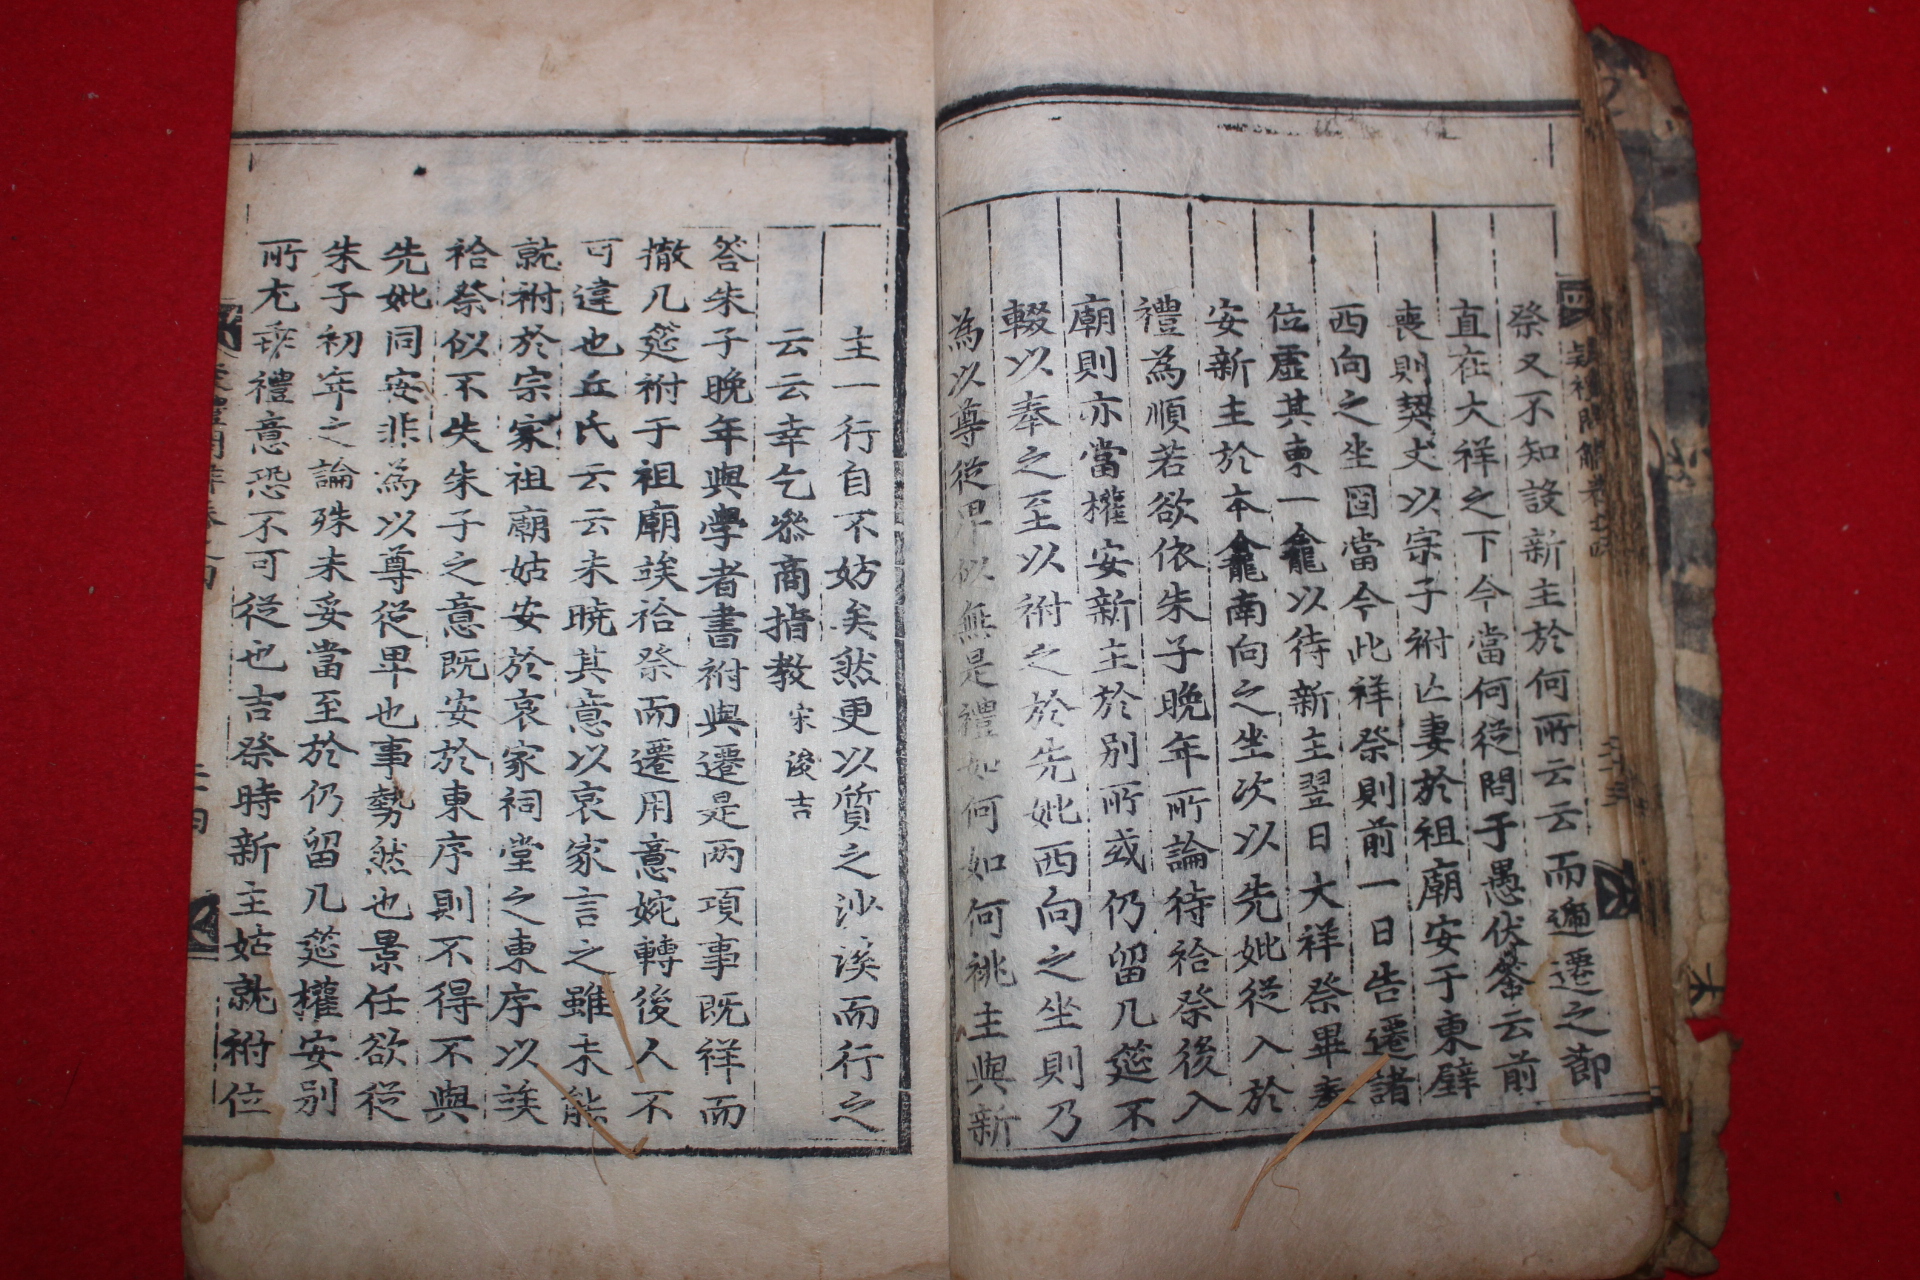 祭又不知設新主於何所云云而遞遷之節
直在大祥之下今當何從問于愚伏答云前
喪則契丈以宗子祔亡妻於祖廟安于東壁
西向之坐固當今此祥祭則前一日告遷諸
位虛其東一龕以待新主翌日大祥祭畢奉
安新主於本龕南向之坐次以先妣從入於
禮為順若欲依朱子晩年所論待祫祭後入
廟則亦當權安新主於別所或仍留几筵不
輟以奉之至以祔之於先妣西向之坐則乃
為以尊從卑似無是禮如何如何祧主與新
主一行自不妨矣然更以質之沙溪而行之
云云幸乞參商指教 宋浚吉
答朱子晩年與學者書祔與遷是两項事既祥而
撤几筵祔于祖廟俟祫祭而遷用意婉轉後人不
可違也丘氏云云未曉其意以哀家言之雖未能
就祔於宗家祖廟姑安於哀家祠堂之東序以俟
祫祭似不失朱子之意既安於東序則不得不與
先妣同安非為以尊從卑也事勢然也景任欲從
朱子初年之論殊未妥當至於仍留几筵權安別
所尤乖禮意恐不可從也吉祭時新主姑就祔位
疑禮問解